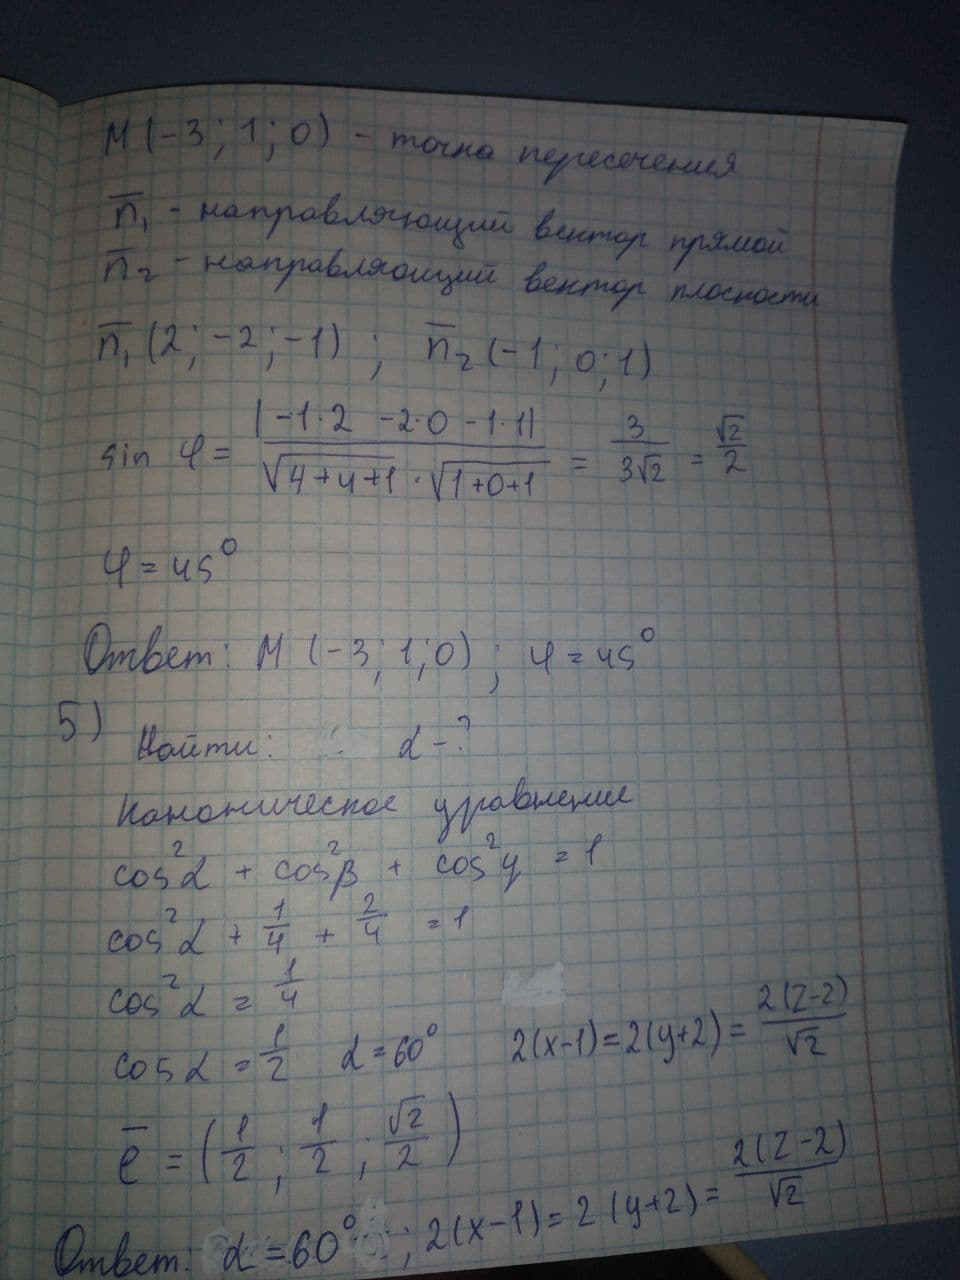 M (-3; 1; 0) - точка пересечения
n̅₁ - направляющий вектор прямой
n̅₂ - направляющий вектор плоскости
n̅₁ (2; -2; -1) ; n̅₂ (-1; 0; 1)
sin φ = |-1·2 -2·0 -1·1| / (√(4+4+1) · √(1+0+1)) = 3/(3√2) = √2/2
φ = 45°
Ответ: M (-3; 1; 0) ; φ = 45°
5)
Найти: α - ?
Каноническое уравнение
cos²α + cos²β + cos²γ = 1
cos²α + 1/4 + 2/4 = 1
cos²α = 1/4
cos α = 1/2 α = 60° 2(x-1) = 2(y+2) = 2(z-2)/√2
e̅ = (1/2 ; 1/2 ; √2/2)
Ответ: α = 60° ; 2(x-1) = 2(y+2) = 2(z-2)/√2